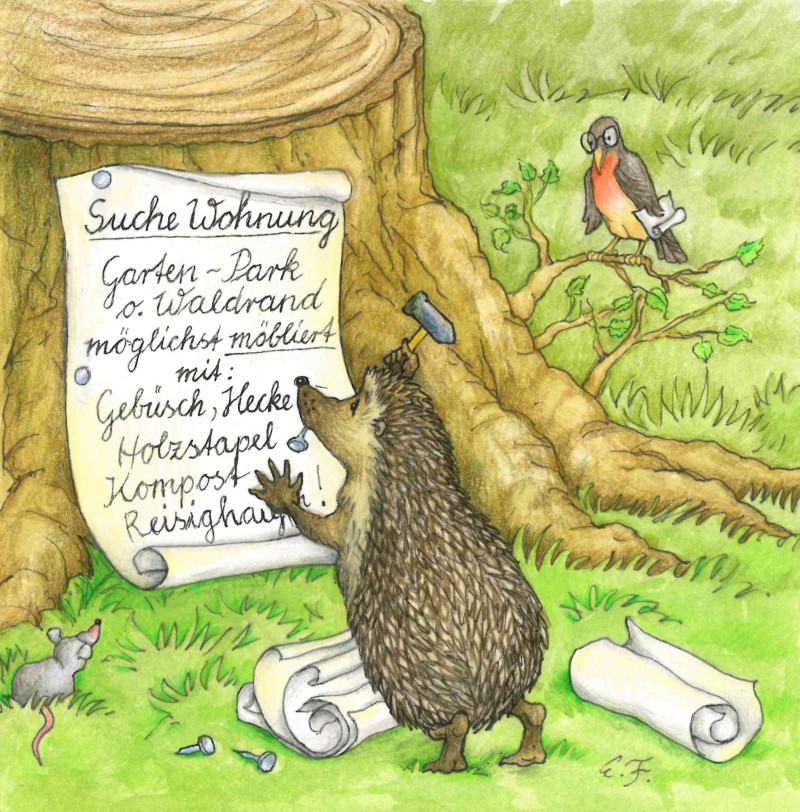 Suche Wohnung
Garten - Park
o. Waldrand
möglichst möbliert
mit:
Gebüsch, Hecke
Holzstapel
Kompost
!
E. F.